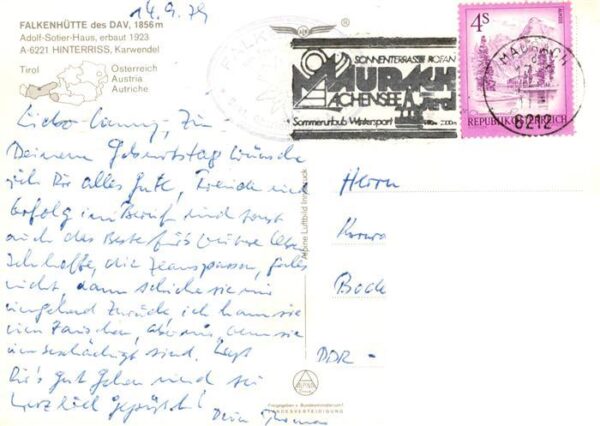 14.9.79
FALKENHÜTTE des DAV, 1856m
Adolf-Sotier-Haus, erbaut 1923
A-6221 HINTERRISS, Karwendel
Tirol
Österreich
Austria
Autriche
SONNENTERRASSE ROFAN
MAURACH
ACHENSEE Tirol
Sommerurlaub Wintersport
4S
REPUBLIK ÖSTERREICH
MAURACH
6212
Zu
Deinem Geburtstag wünsche
ich Dir alles Gute, Freude und
Erfolg im Beruf und sonst
auch das Beste für's
Ich hoffe, die passen, falls
nicht, dann schicke sie mir
umgehend zurück, ich kann sie
aber nur, wenn sie
unbeschädigt sind. Laß
Dir's gut gehen und sei
herzlich gegrüßt!
Dein Thomas
Herrn
Bode
DDR -
Alpine Luftbild Innsbruck
Freigegeben v. Bundesministerium f.
LANDESVERTEIDIGUNG